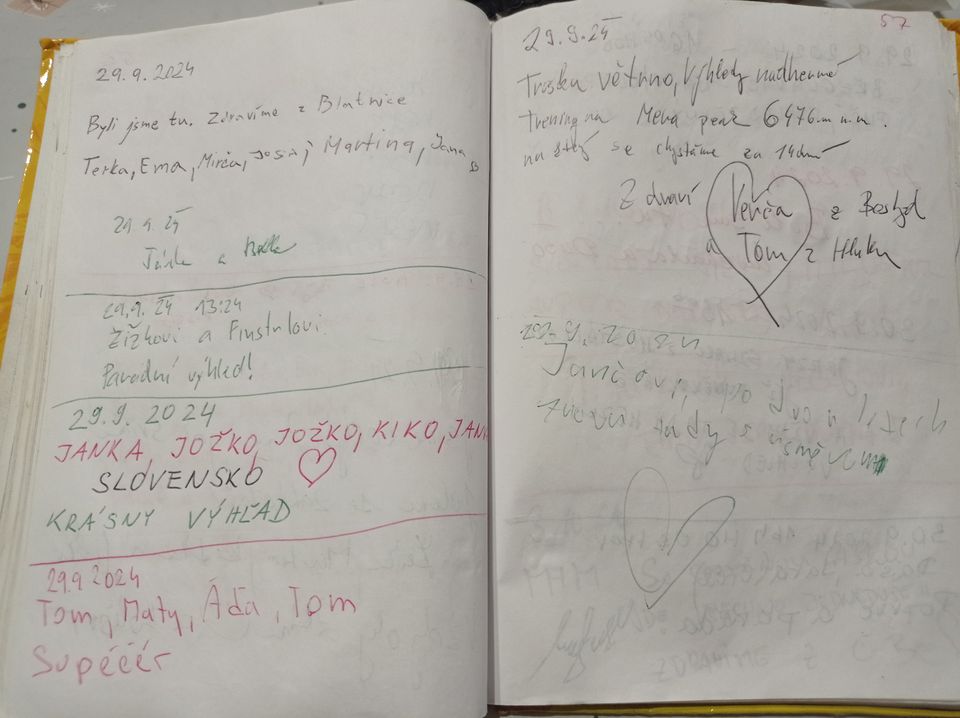 29.9.2024
Byli jsme tu. Zdravíme z Blatnice
Terka, Ema, Mirča, Martina, Jana
29.9.24
a
29.9.24 13:24
Žižkovi a
Parádní výhled!
29.9.2024
JANKA, JOŽKO, JOŽKO, KIKO, JAN
SLOVENSKO
KRÁSNY VÝHĽAD
29.9 2024
Tom, Maty, Áďa, Tom
Supééér
57
29.9.24
Troska větrno, Výhledy nadherné
trening na Mera peak 6476 m n.m.
se chystáme za 14dní
Zdraví Verča z
a Tom z Hluku
29.9.2024
Jančovi, po dvou letech
znovu tady s úsměvem